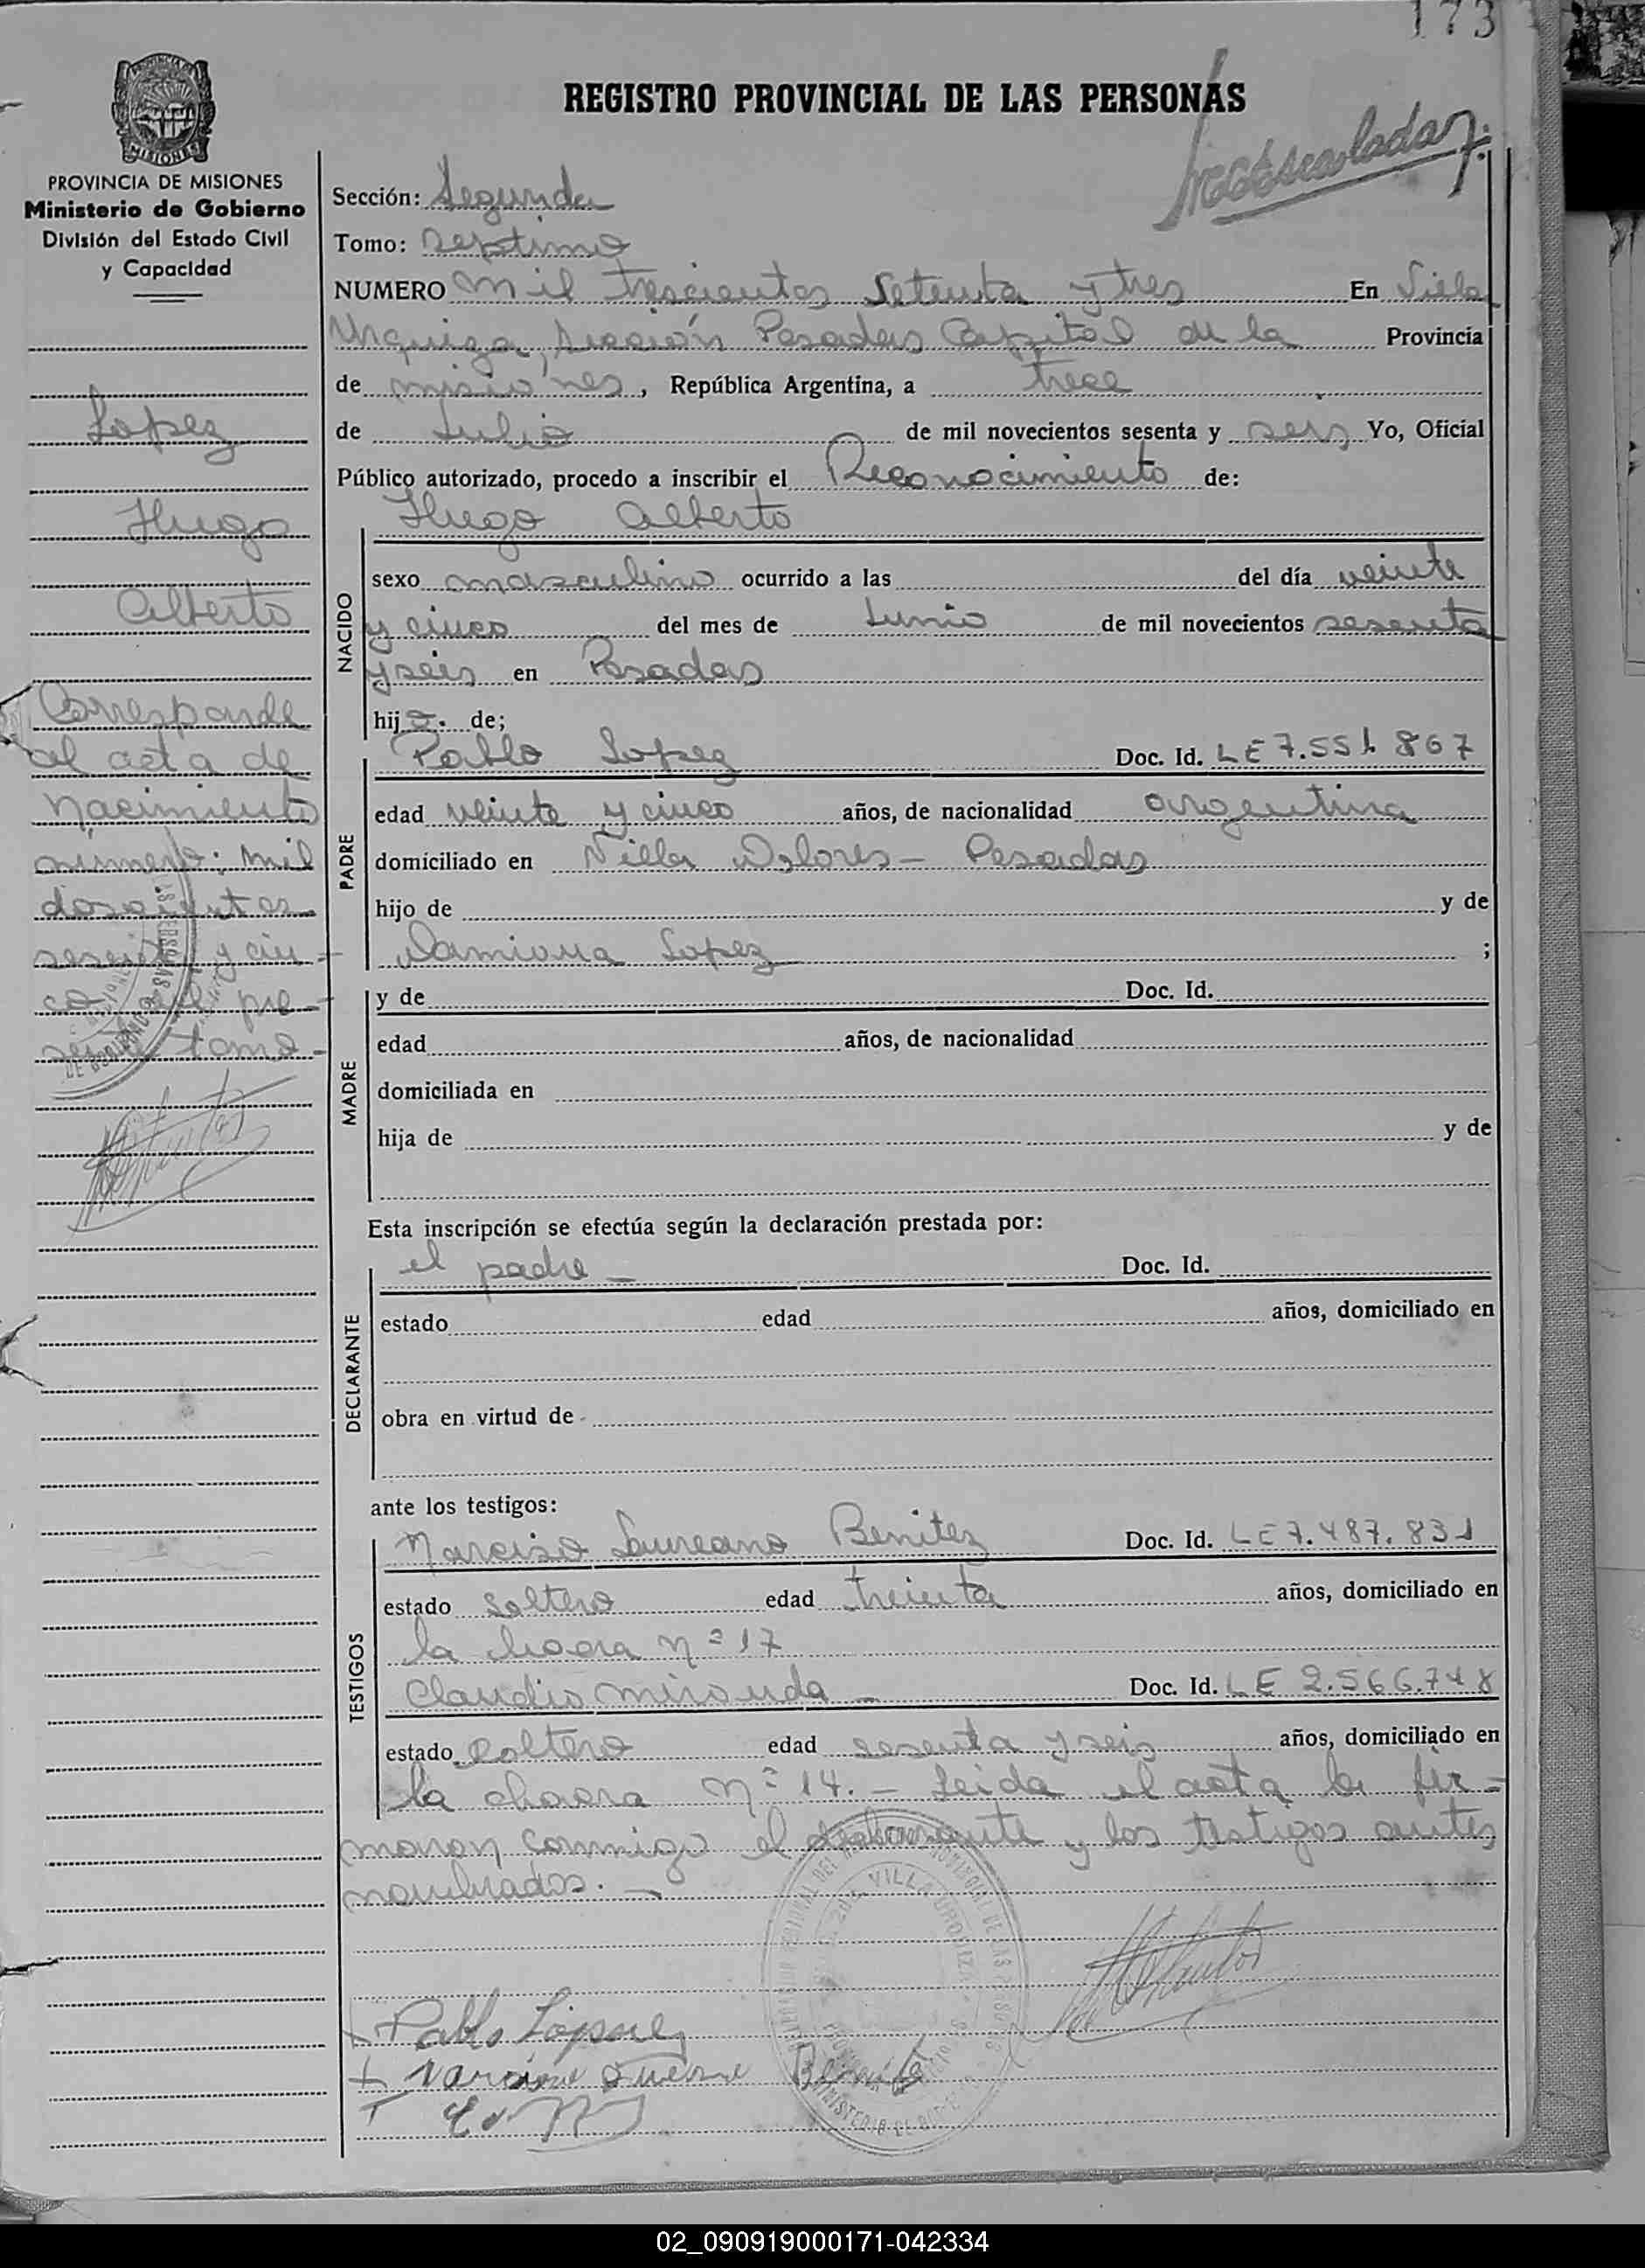 173
REGISTRO PROVINCIAL DE LAS PERSONAS
MISIONES
PROVINCIA DE MISIONES
Ministerio de Gobierno
División del Estado Civil
y Capacidad
Lopez
Hugo
Alberto
Corresponde
al acta de
Nacimiento
número: mil
doscientos
sesenta y cin-
co del pre-
sente tomo-
Sección: Segunda
Tomo: Septimo
NUMERO mil trescientos setenta y tres En Villa
Urquiza, Sección Posadas Capital de la Provincia
de misiones, República Argentina, a trece
de Julio de mil novecientos sesenta y seis Yo, Oficial
Público autorizado, procedo a inscribir el Reconocimiento de:
Hugo Alberto
NACIDO
sexo masculino ocurrido a las del día veinte
y cinco del mes de Junio de mil novecientos sesenta
y seis en Posadas
hijo. de;
PADRE
Pablo Lopez Doc. Id. LE 7.551.867
edad veinte y cinco años, de nacionalidad argentina
domiciliado en Villa Dolores - Posadas
hijo de y de
Damiana Lopez ;
MADRE
y de Doc. Id.
edad años, de nacionalidad
domiciliada en
hija de y de
Esta inscripción se efectúa según la declaración prestada por:
DECLARANTE
el padre - Doc. Id.
estado edad años, domiciliado en
obra en virtud de
ante los testigos:
TESTIGOS
Narciso Laureano Benitez Doc. Id. LE 7.487.831
estado soltero edad treinta años, domiciliado en
la chacra Nº 17
Claudio Miranda - Doc. Id. LE 2.566.748
estado soltero edad sesenta y seis años, domiciliado en
la chacra Nº 14. - Leida el acta la fir-
maron conmigo el declarante y los testigos antes
nombrados. -
VILLA URQUIZA
Pablo Lópe
Benite
02_090919000171-042334